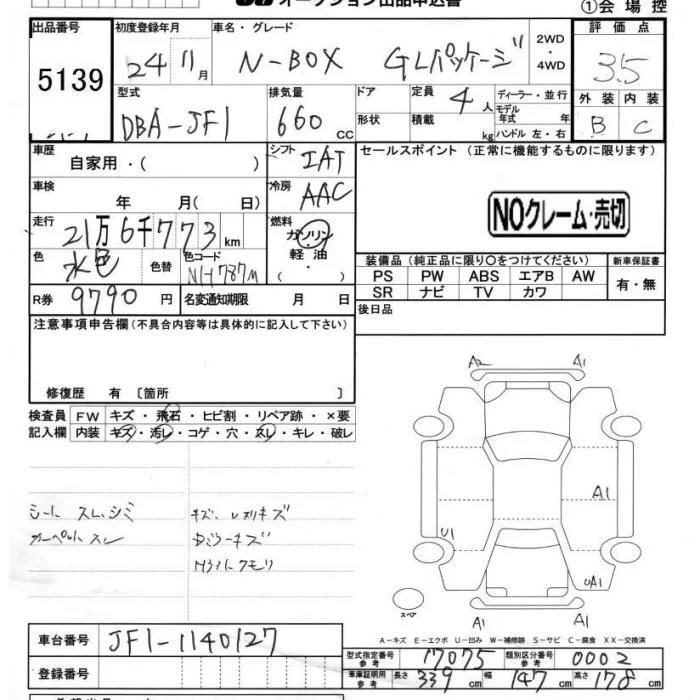 ①会場控
出品番号 初度登録年月 車名・グレード 2WD・4WD 評価点
5139 24 11月 N-BOX GLパッケージ 3.5
型式 排気量 ドア 定員 4人 ディーラー・並行 外装 内装
DBA-JF1 660cc 形状 積載 kg モデル年式 年 ハンドル 左・右 B C
車歴 自家用・( ) シフト IAT セールスポイント (正常に機能するものに限ります)
車検 年 月( 日) 冷房 AAC
NOクレーム・売切
走行 21万6千773km 燃料 ガソリン 軽油・
色 水色 色替 色コード
装備品(純正品に限り○をつけてください) 新車保証書
PS PW ABS エアB AW 有・無
SR ナビ TV カワ
R券 9790円 名変通知期限 月 日 後日品
注意事項申告欄(不具合内容等は具体的に記入して下さい)
修復歴 有 〔箇所 〕
検査員 FW キズ・飛石・ヒビ割・リペア跡・×要
記入欄 内装 キズ・汚レ・コゲ・穴・スレ・キレ・破レ
A2 A1
A1
U1
UA1
A1 A1
スペア
シート スレ、シミ
カーペット スレ
A-キズ E-エクボ U-凹み W-補修跡 S-サビ C-腐食 XX-交換済
車台番号 JF1-1140127
登録番号
型式指定番号 参考 17075 類別区分番号 参考 0002
車庫証明用 参考 長さ 339cm 幅 147cm 高さ 178cm